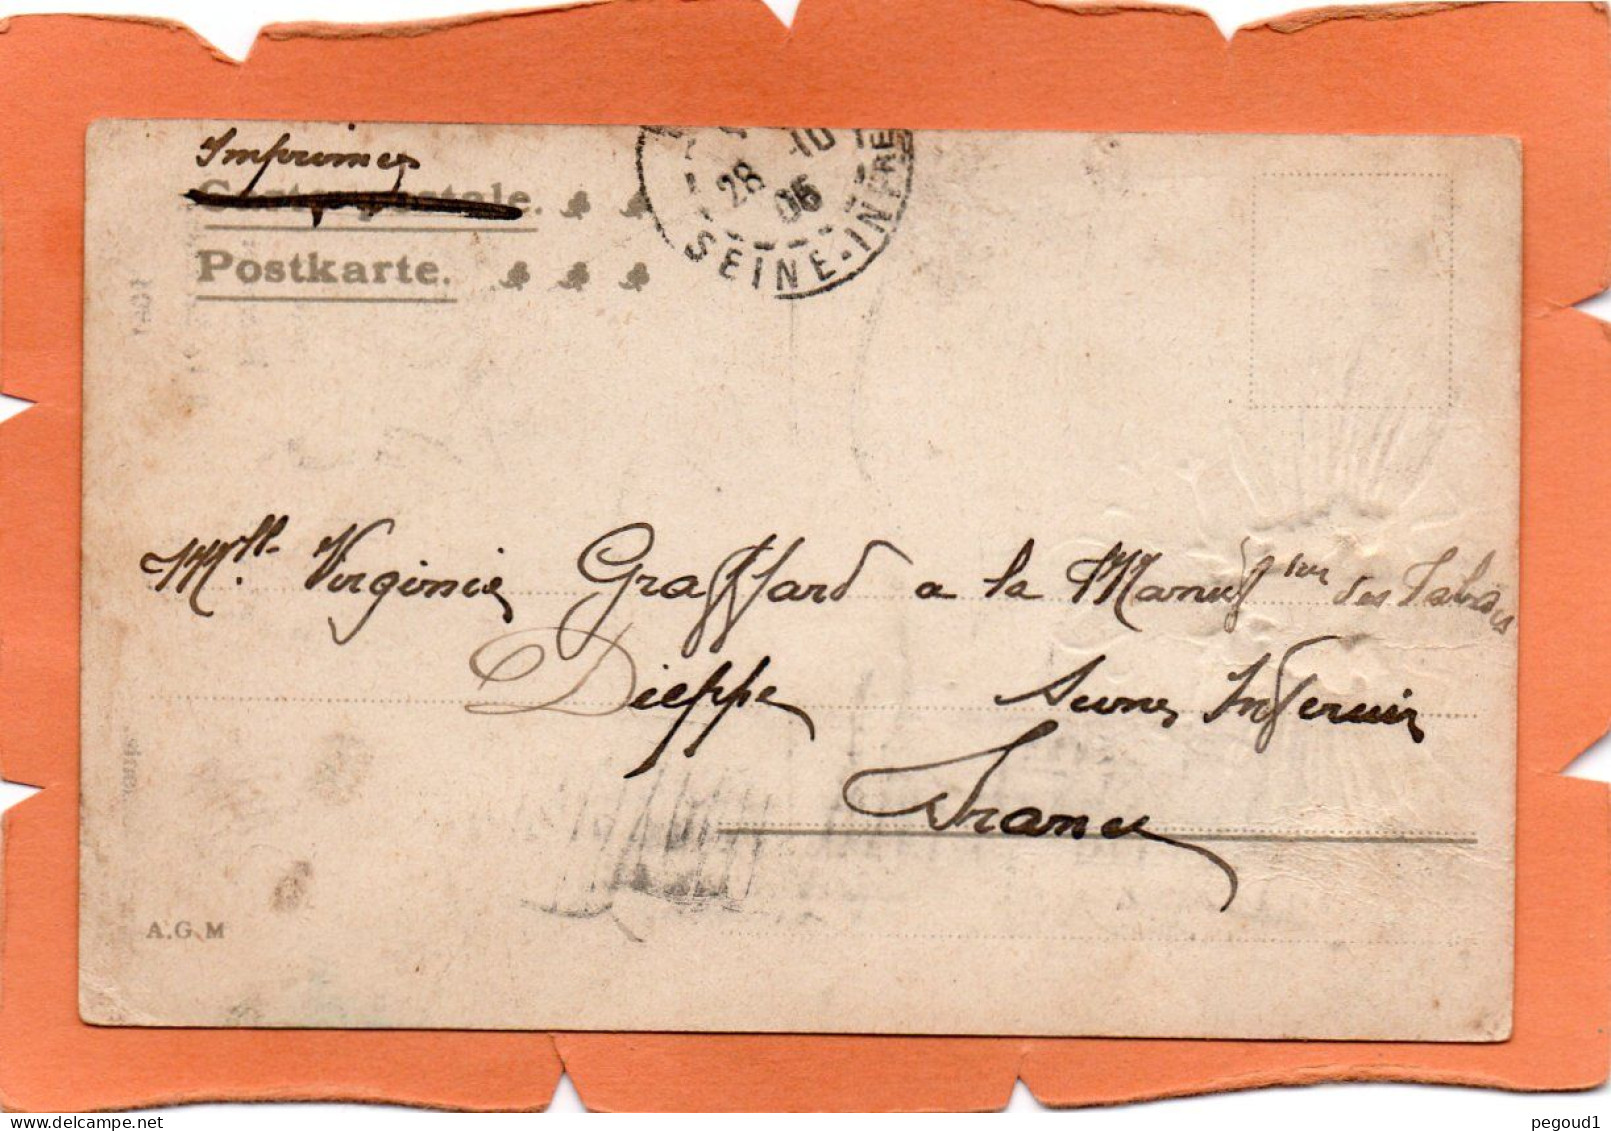 Imprimés
Carte postale.
Postkarte.
28 -10 05
SEINE-INFRE
Mlle Virginie Graffard a la Manufre des Tabacs
Dieppe Seine Inferieur
France
A.G.M
pegoud1